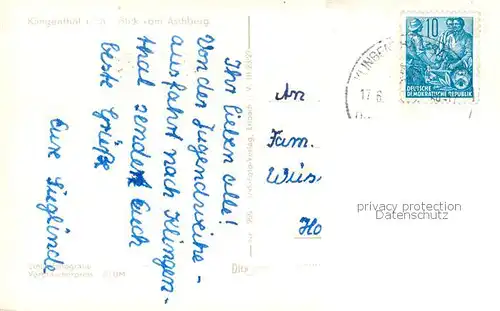 Klingenthal
Blick vom Aschberg
Ihr lieben alle!
Von der Jugendweihe-
ausfahrt nach Klingen-
thal sendet Euch
beste Grüße
Eure Sieglinde
An
Fam.
Wüs
Ho
10
DEUTSCHE
DEMOKRATISCHE REPUBLIK
KLINGEN
17.6.
privacy protection
Datenschutz